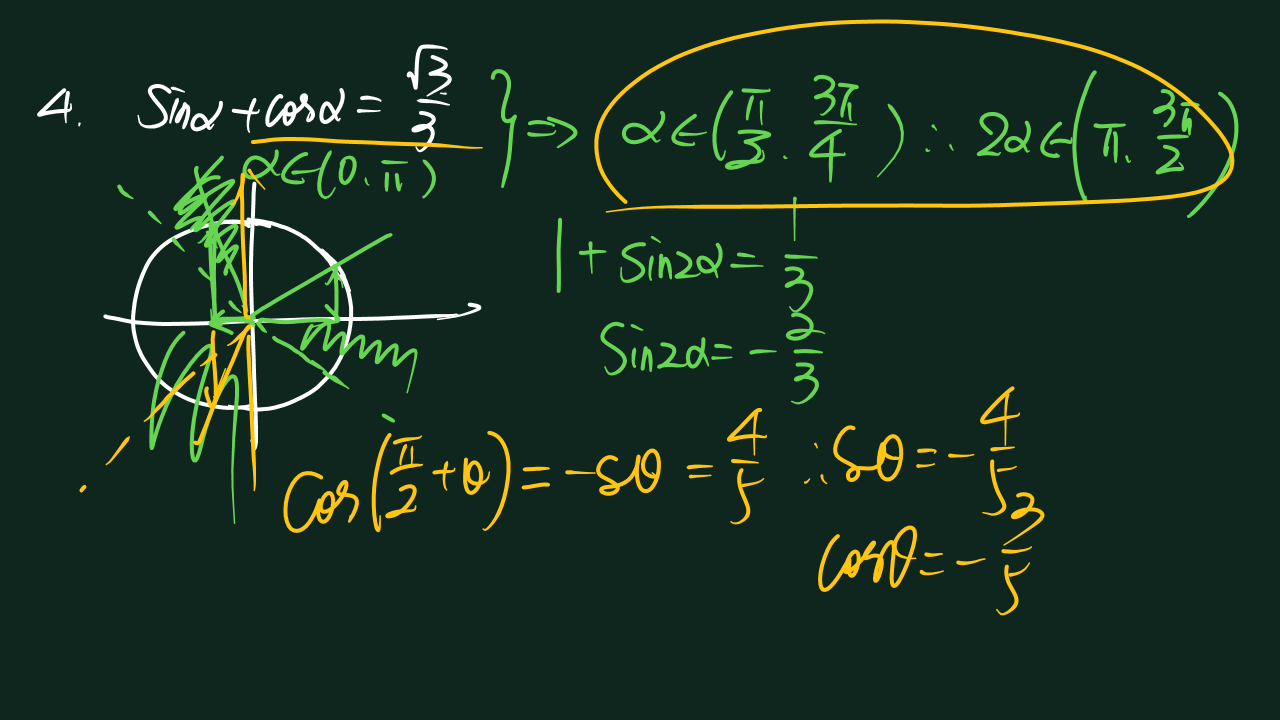 4. sinα + cosα = √3/3 } ⇒ α∈(π/3. 3π/4) ∴ 2α∈(π. 3π/2)
α∈(0.π)
1 + sin2α = 1/3
sin2α = -2/3
cos(π/2 + θ) = -sθ = 4/5 ∴ sθ = -4/5
cosθ = -3/5